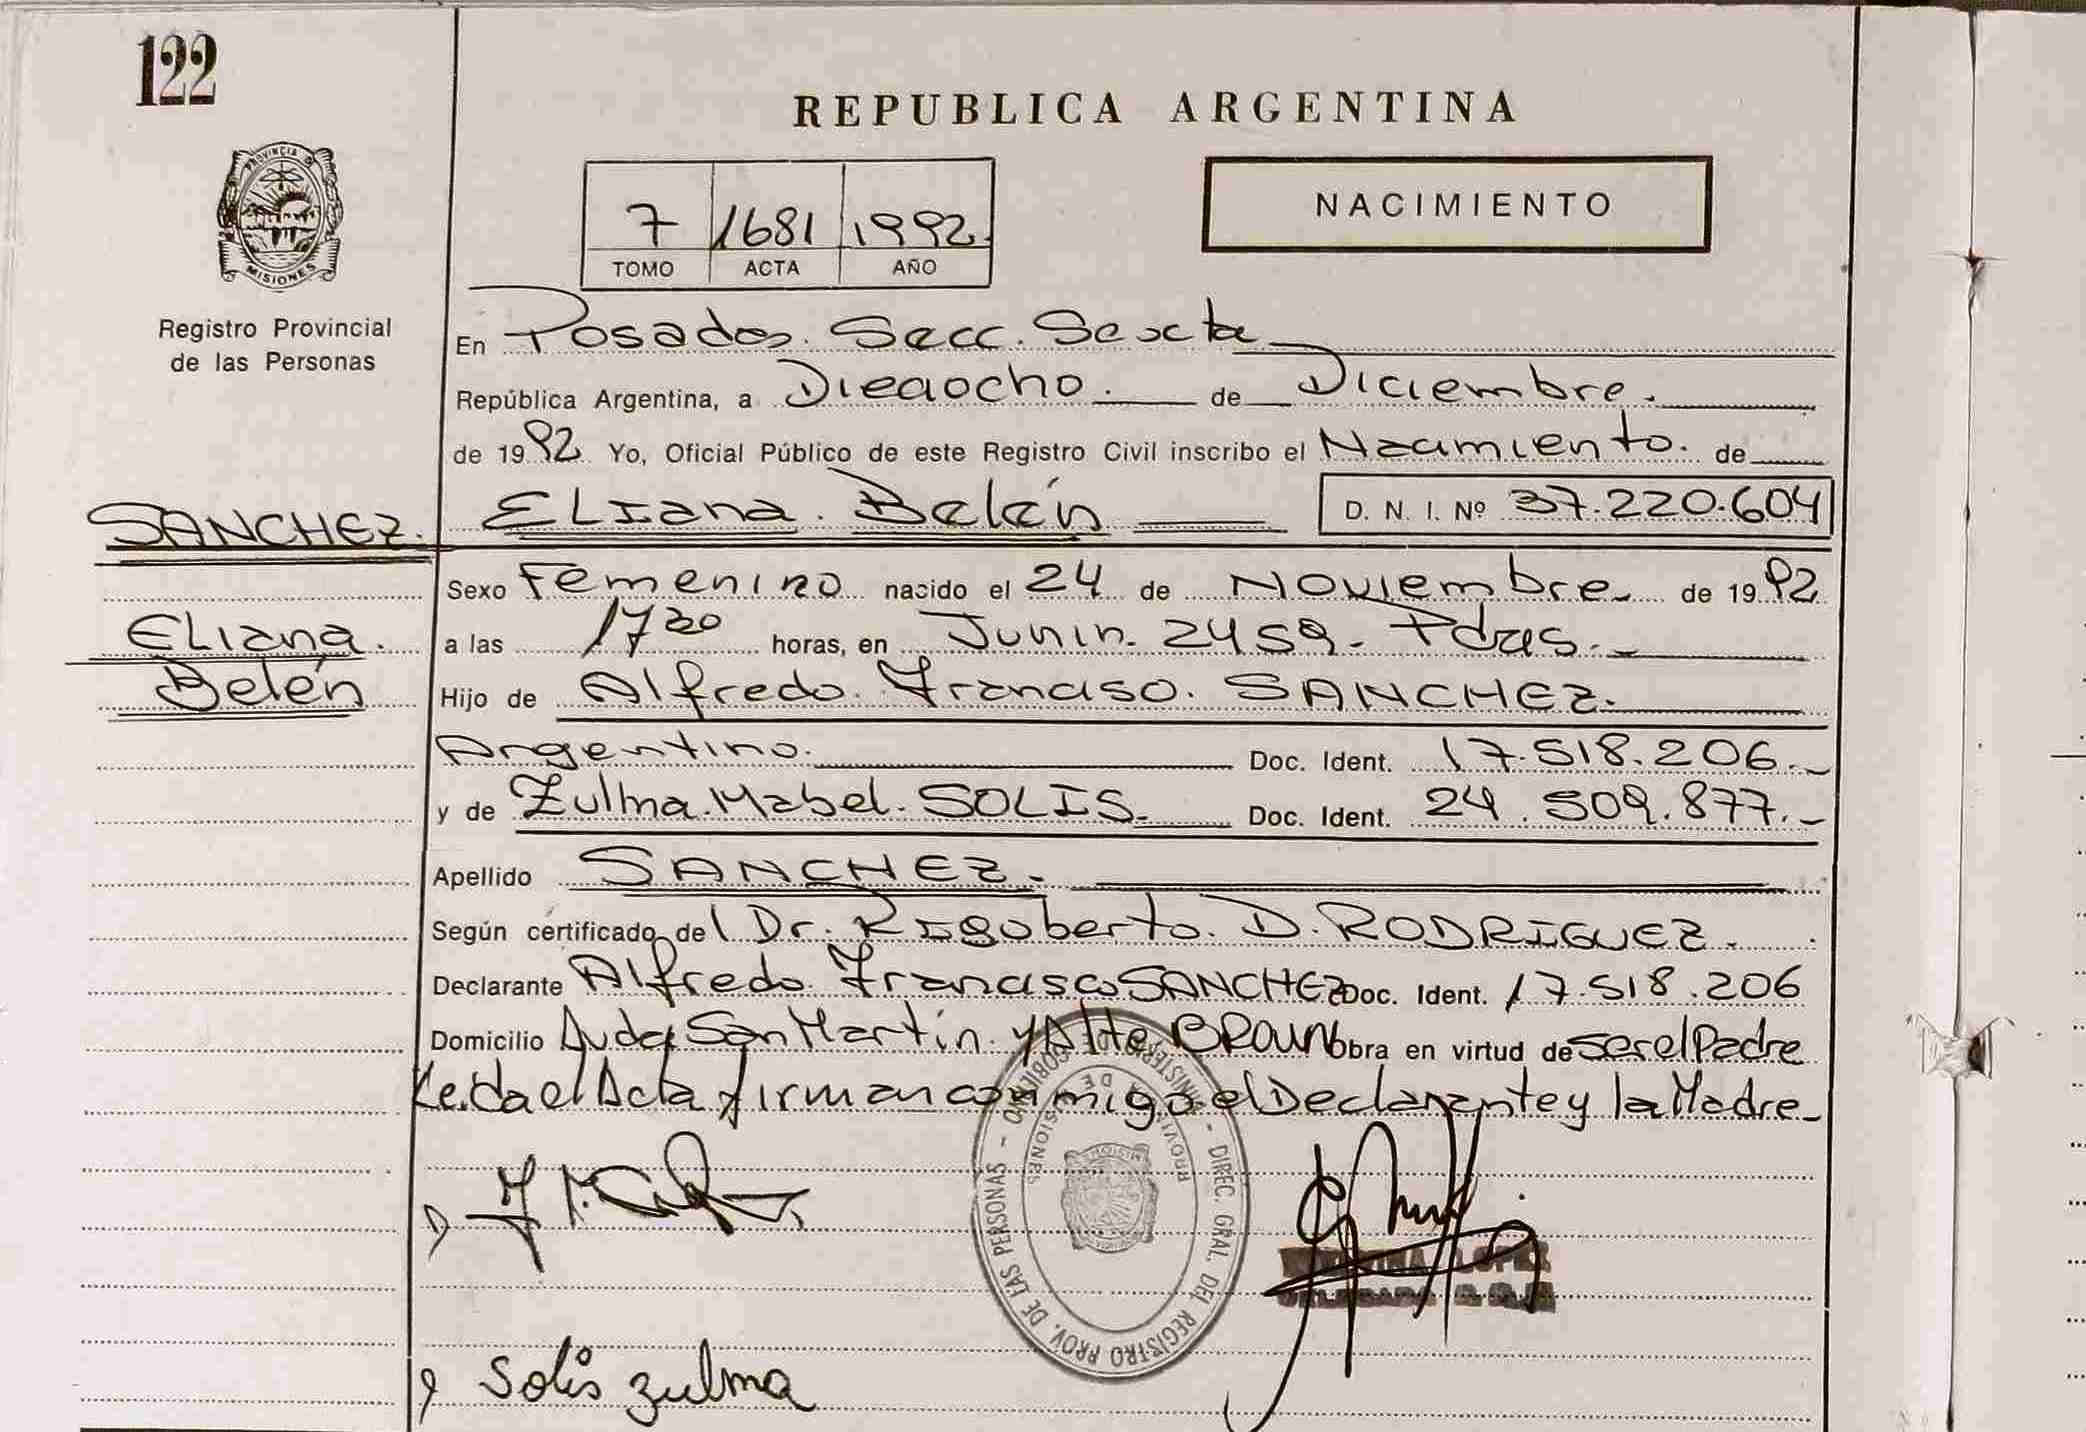 122
REPUBLICA ARGENTINA
PROVINCIA DE
MISIONES
7 1681 1992
TOMO ACTA AÑO
NACIMIENTO
Registro Provincial
de las Personas
En Posadas. Secc. Sexta
República Argentina, a Dieciocho. de Diciembre.
de 1992 Yo, Oficial Público de este Registro Civil inscribo el Nacimiento. de
SANCHEZ.
Eliana. Belén D. N. I. Nº 37.220.604
Sexo Femenino nacido el 24 de Noviembre de 1992
Eliana.
a las horas, en Junin. 2459. Pdas.
Belén
Hijo de Alfredo. Franciso. SANCHEZ.
Argentino. Doc. Ident. 17.518.206.
y de Zulma. Mabel. SOLIS. Doc. Ident. 24.509.877.
Apellido SANCHEZ.
Según certificado del Dr. Rigoberto. D. RODRIGUEZ.
Declarante Alfredo. Francisco SANCHEZ Doc. Ident. 17.518.206
Domicilio Avda. San Martín. y Alte BROWN Obra en virtud de ser el Padre
Leida el Acta firman conmigo el Declarante y la Madre
MINISTERIO DE GOBIERNO - DIREC. GRAL. DEL REGISTRO PROV. DE LAS PERSONAS -
PROVINCIA DE MISIONES
LOPEZ
Solis Zulma